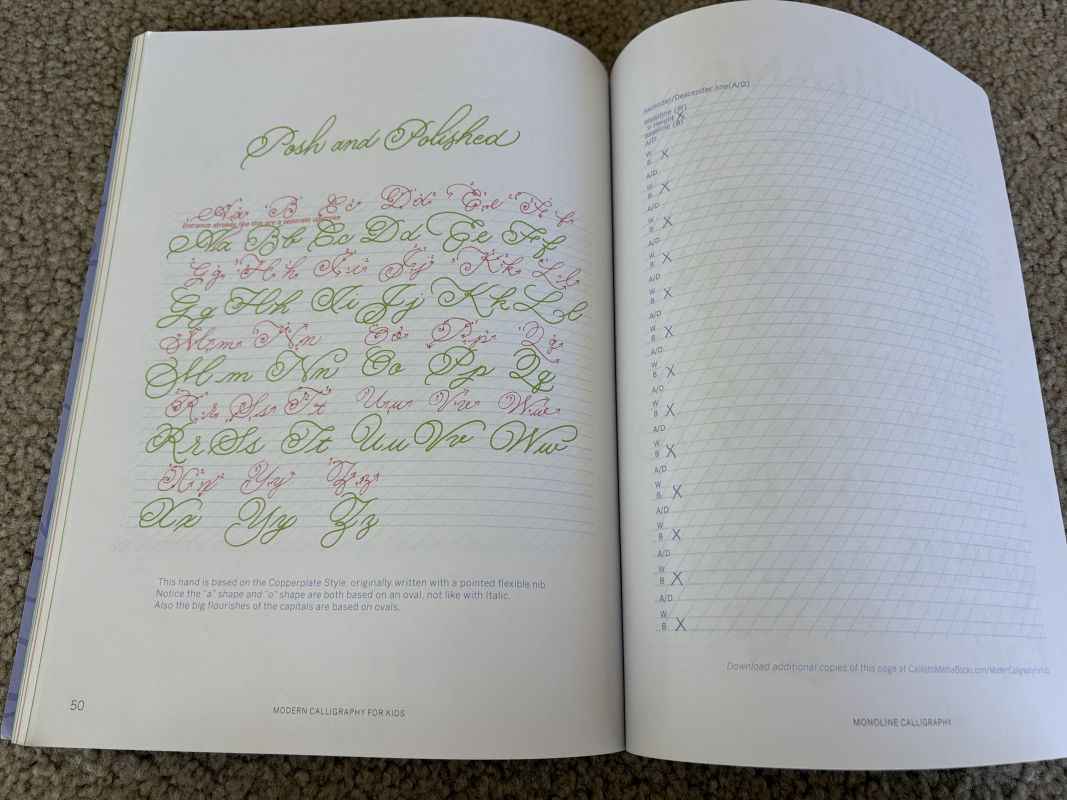 Posh and Polished
Aa B Ec Dd Ee Ff
Entrance strokes like this are a separate upstroke
Aa Bb Cc Dd Ee Ff
Gg Hh Ii Jj Kk Ll
Gg Hh Ii Jj Kk Ll
Mm Nn Oo Pp Qq
Mm Nn Oo Pp Qq
Rr Ss Tt Uu Vv Ww
Rr Ss Tt Uu Vv Ww
Xx Yy Zz
Xx Yy Zz
This hand is based on the Copperplate Style, originally written with a pointed flexible nib.
Notice the "a" shape and "o" shape are both based on an oval, not like with Italic.
Also the big flourishes of the capitals are based on ovals.
50
MODERN CALLIGRAPHY FOR KIDS
Ascender/Descender line(A/D)
Waistline (W)
X Height X
Baseline (B)
A/D
W
B X
A/D
W
B X
A/D
W
B X
A/D
W
B X
A/D
W
B X
A/D
W
B X
A/D
W
B X
A/D
W
B X
A/D
W
B X
A/D
W
B X
A/D
W
B X
A/D
W
B X
A/D
W
B X
Download additional copies of this page at CallistoMediaBooks.com/ModernCalligraphyForKids
MONOLINE CALLIGRAPHY